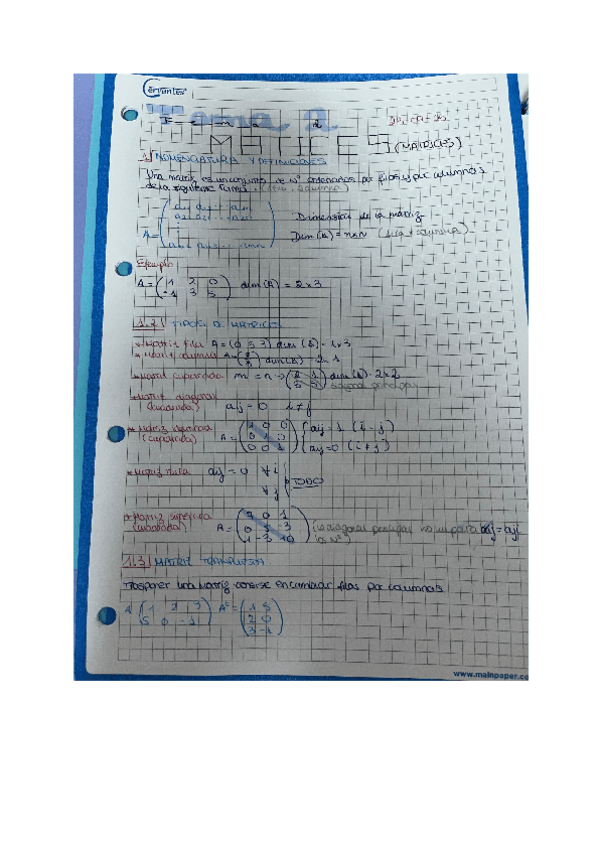 Cervantes
Tema 2
MATICES (MATRICES)
1) NOMENCLATURA Y DEFINICIONES
Una matriz es un conjunto de nº ordenados por filas y por columnas
de la siguiente forma:
A= Dimensión de la matriz
Dim (A) = mxn (fila x columna)
Ejemplo
A = ( 1 2 0 ) dim (A) = 2x3
-1 3 5
1.2) TIPOS DE MATRICES
* Matriz fila A = (0 5 3) dim (A) = 1x3
* Matriz columna dim (A) = 2x1
* Matriz cuadrada m = n → dim (A) = 2x2
diagonal principal
* Matriz diagonal
(cuadrada) aij = 0 i≠j
* Matriz
(cuadrada) A = ( 1 0 0 / 0 1 0 / 0 0 1 ) aij = 1 (i = j)
aij = 0 (i ≠ j)
* Matriz nula aij = 0 ∀ i
∀ j TODO
* Matriz
(cuadrada) A = la diagonal principal no importa aij = aji
1.3) MATRIZ TRASPUESTA
Trasponer una matriz consiste en cambiar filas por columnas
A ( 1 2 3 ) Aᵗ = ( 1 5
5 0 -1 2 0
3 -1 )
www.mainpaper.co